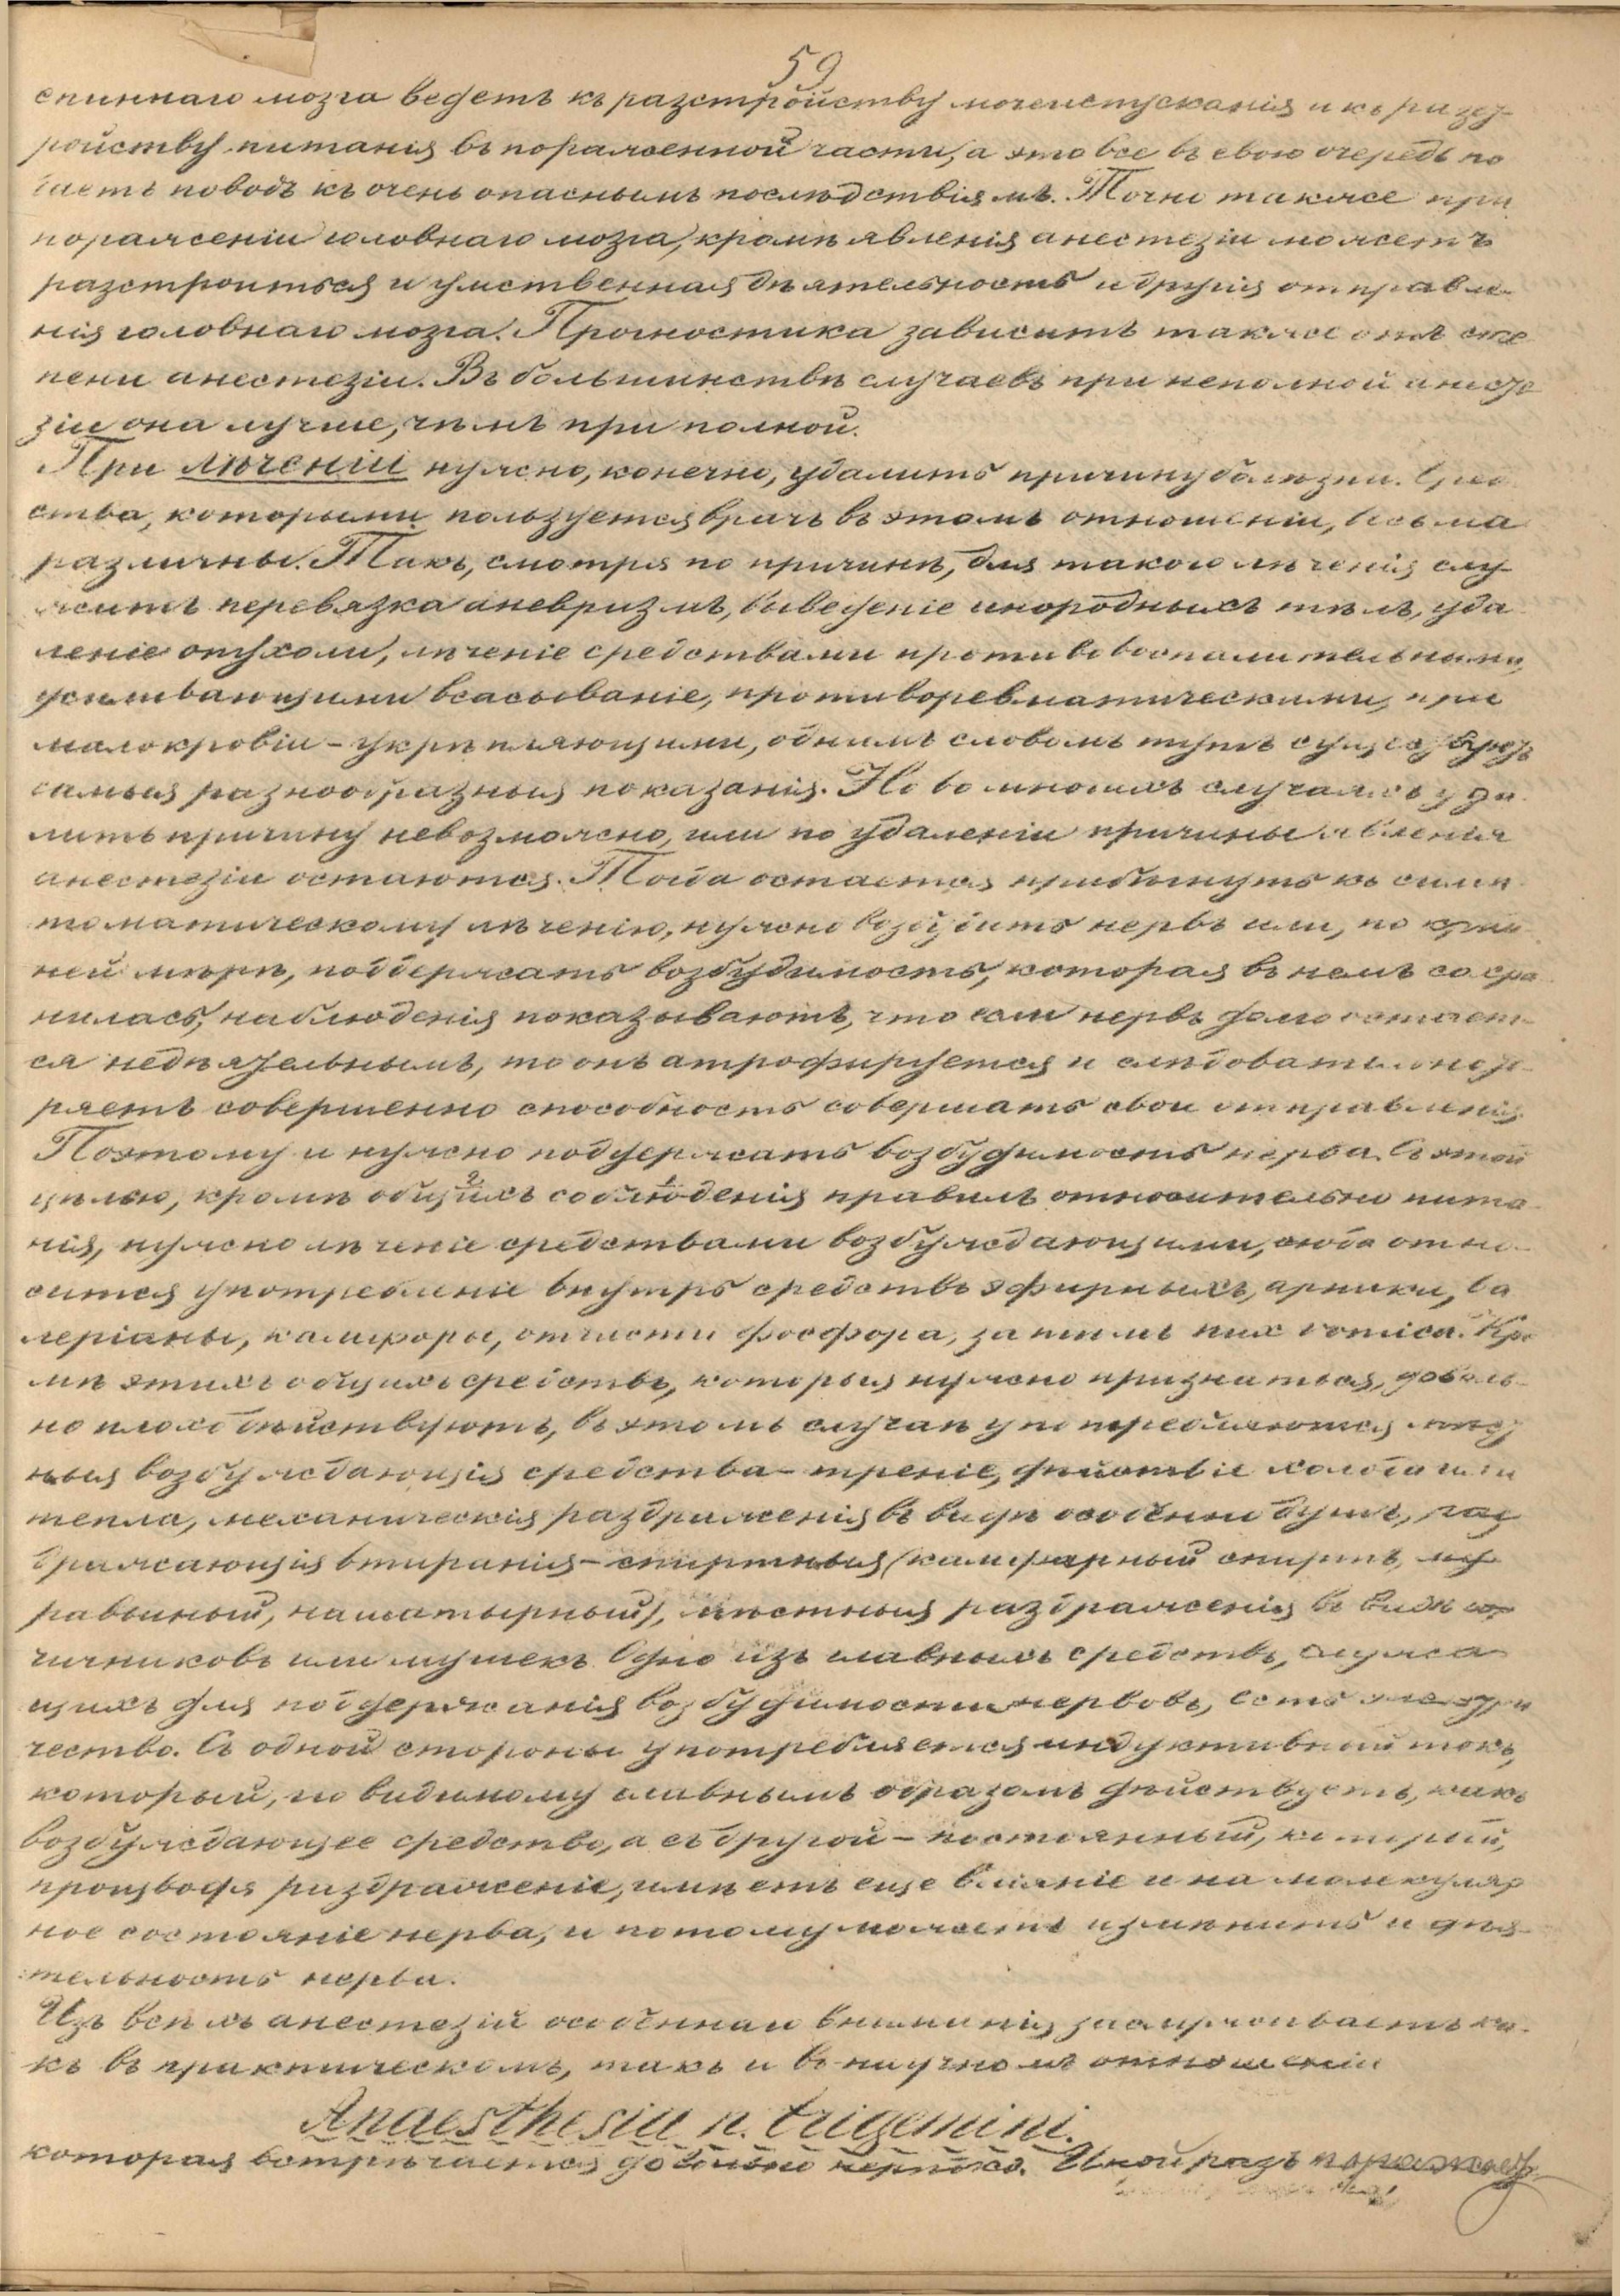 59
спиннаго мозга ведетъ къ разстройству мочеиспусканія и къ разст-
ройству питанія въ пораженной части, а это все въ свою очередь по
даетъ поводъ къ очень опаснымъ послѣдствіямъ. Точно также при
пораженіи головнаго мозга, кромѣ явленія анестезіи можетъ
разстроиться и умственная дѣятельность и другія отправле-
нія головнаго мозга. Прогностика зависитъ также отъ сте
пени анестезіи. Въ большинствѣ случаевъ при неполной анесте
зіи она лучше, чѣмъ при полной.
При лѣченіи нужно, конечно, удалить причину болѣзни. Сред
ства, которыми пользуется врачъ въ этомъ отношеніи, весьма
различны. Такъ, смотря по причинѣ, для такого лѣченія слу-
житъ перевязка аневризмъ, выведеніе инородныхъ тѣлъ, уда
леніе опухоли, лѣченіе средствами противовоспалительными,
усиливающими всасываніе, противоревматическими, при
малокровіи - укрѣпляющими, однимъ словомъ тутъ
самыя разнообразныя показанія. Но во многихъ случаяхъ уда
лить причину невозможно, или по удаленіи причины явленія
анестезіи остаются. Тогда остается прибѣгнуть къ симп
томатическому лѣченію, нужно возбудить нервъ или, по край
ней мѣрѣ, поддержать возбудимость, которая въ немъ сохра
нилась, наблюденія показываютъ, что если нервъ долго остает-
ся недѣятельнымъ, то онъ атрофируется и слѣдовательно те-
ряетъ совершенно способность совершать свои отправленія.
Поэтому и нужно поддержать возбудимость нерва. Съ этой
цѣлью, кромѣ общихъ соблюденія правилъ относительно пита
нія, нужно лѣченіе средствами возбуждающими, сюда отно-
сится употребленіе внутрь средствъ эфирныхъ, арники, ва
леріаны, камфоры, отчасти фосфора, затѣмъ nux vomica. Кро
мѣ этихъ общихъ средствъ, которыя нужно признаться, доволь-
но плохо дѣйствуютъ, въ этомъ случаѣ употребляются мѣст
ныя возбуждающія средства - треніе, дѣйствіе холода или
тепла, механическія раздраженія въ видѣ особенно душъ, раз
дражающія втиранія - спиртныя (камфарный спиртъ, му
равьиный, нашатырный), мѣстныя раздраженія въ видѣ гор
чичниковъ или мушекъ. Одно изъ главныхъ средствъ, служа
щихъ для поддержанія возбудимости нервовъ, есть электри
чество. Съ одной стороны употребляется индуктивный токъ,
который, по видимому главнымъ образомъ дѣйствуетъ, какъ
возбуждающее средство, а съ другой - постоянный, который,
производя раздраженіе, имѣетъ еще вліяніе и на молекуляр
ное состояніе нерва, и потому можетъ измѣнить и дѣя-
тельность нерва.
Изъ всѣхъ анестезій особеннаго вниманія заслуживаетъ ка-
къ въ практическомъ, такъ и въ научномъ отношеніи
Anaesthesia n. trigemini.
которая встрѣчается довольно нерѣдко. Иной разъ поражает